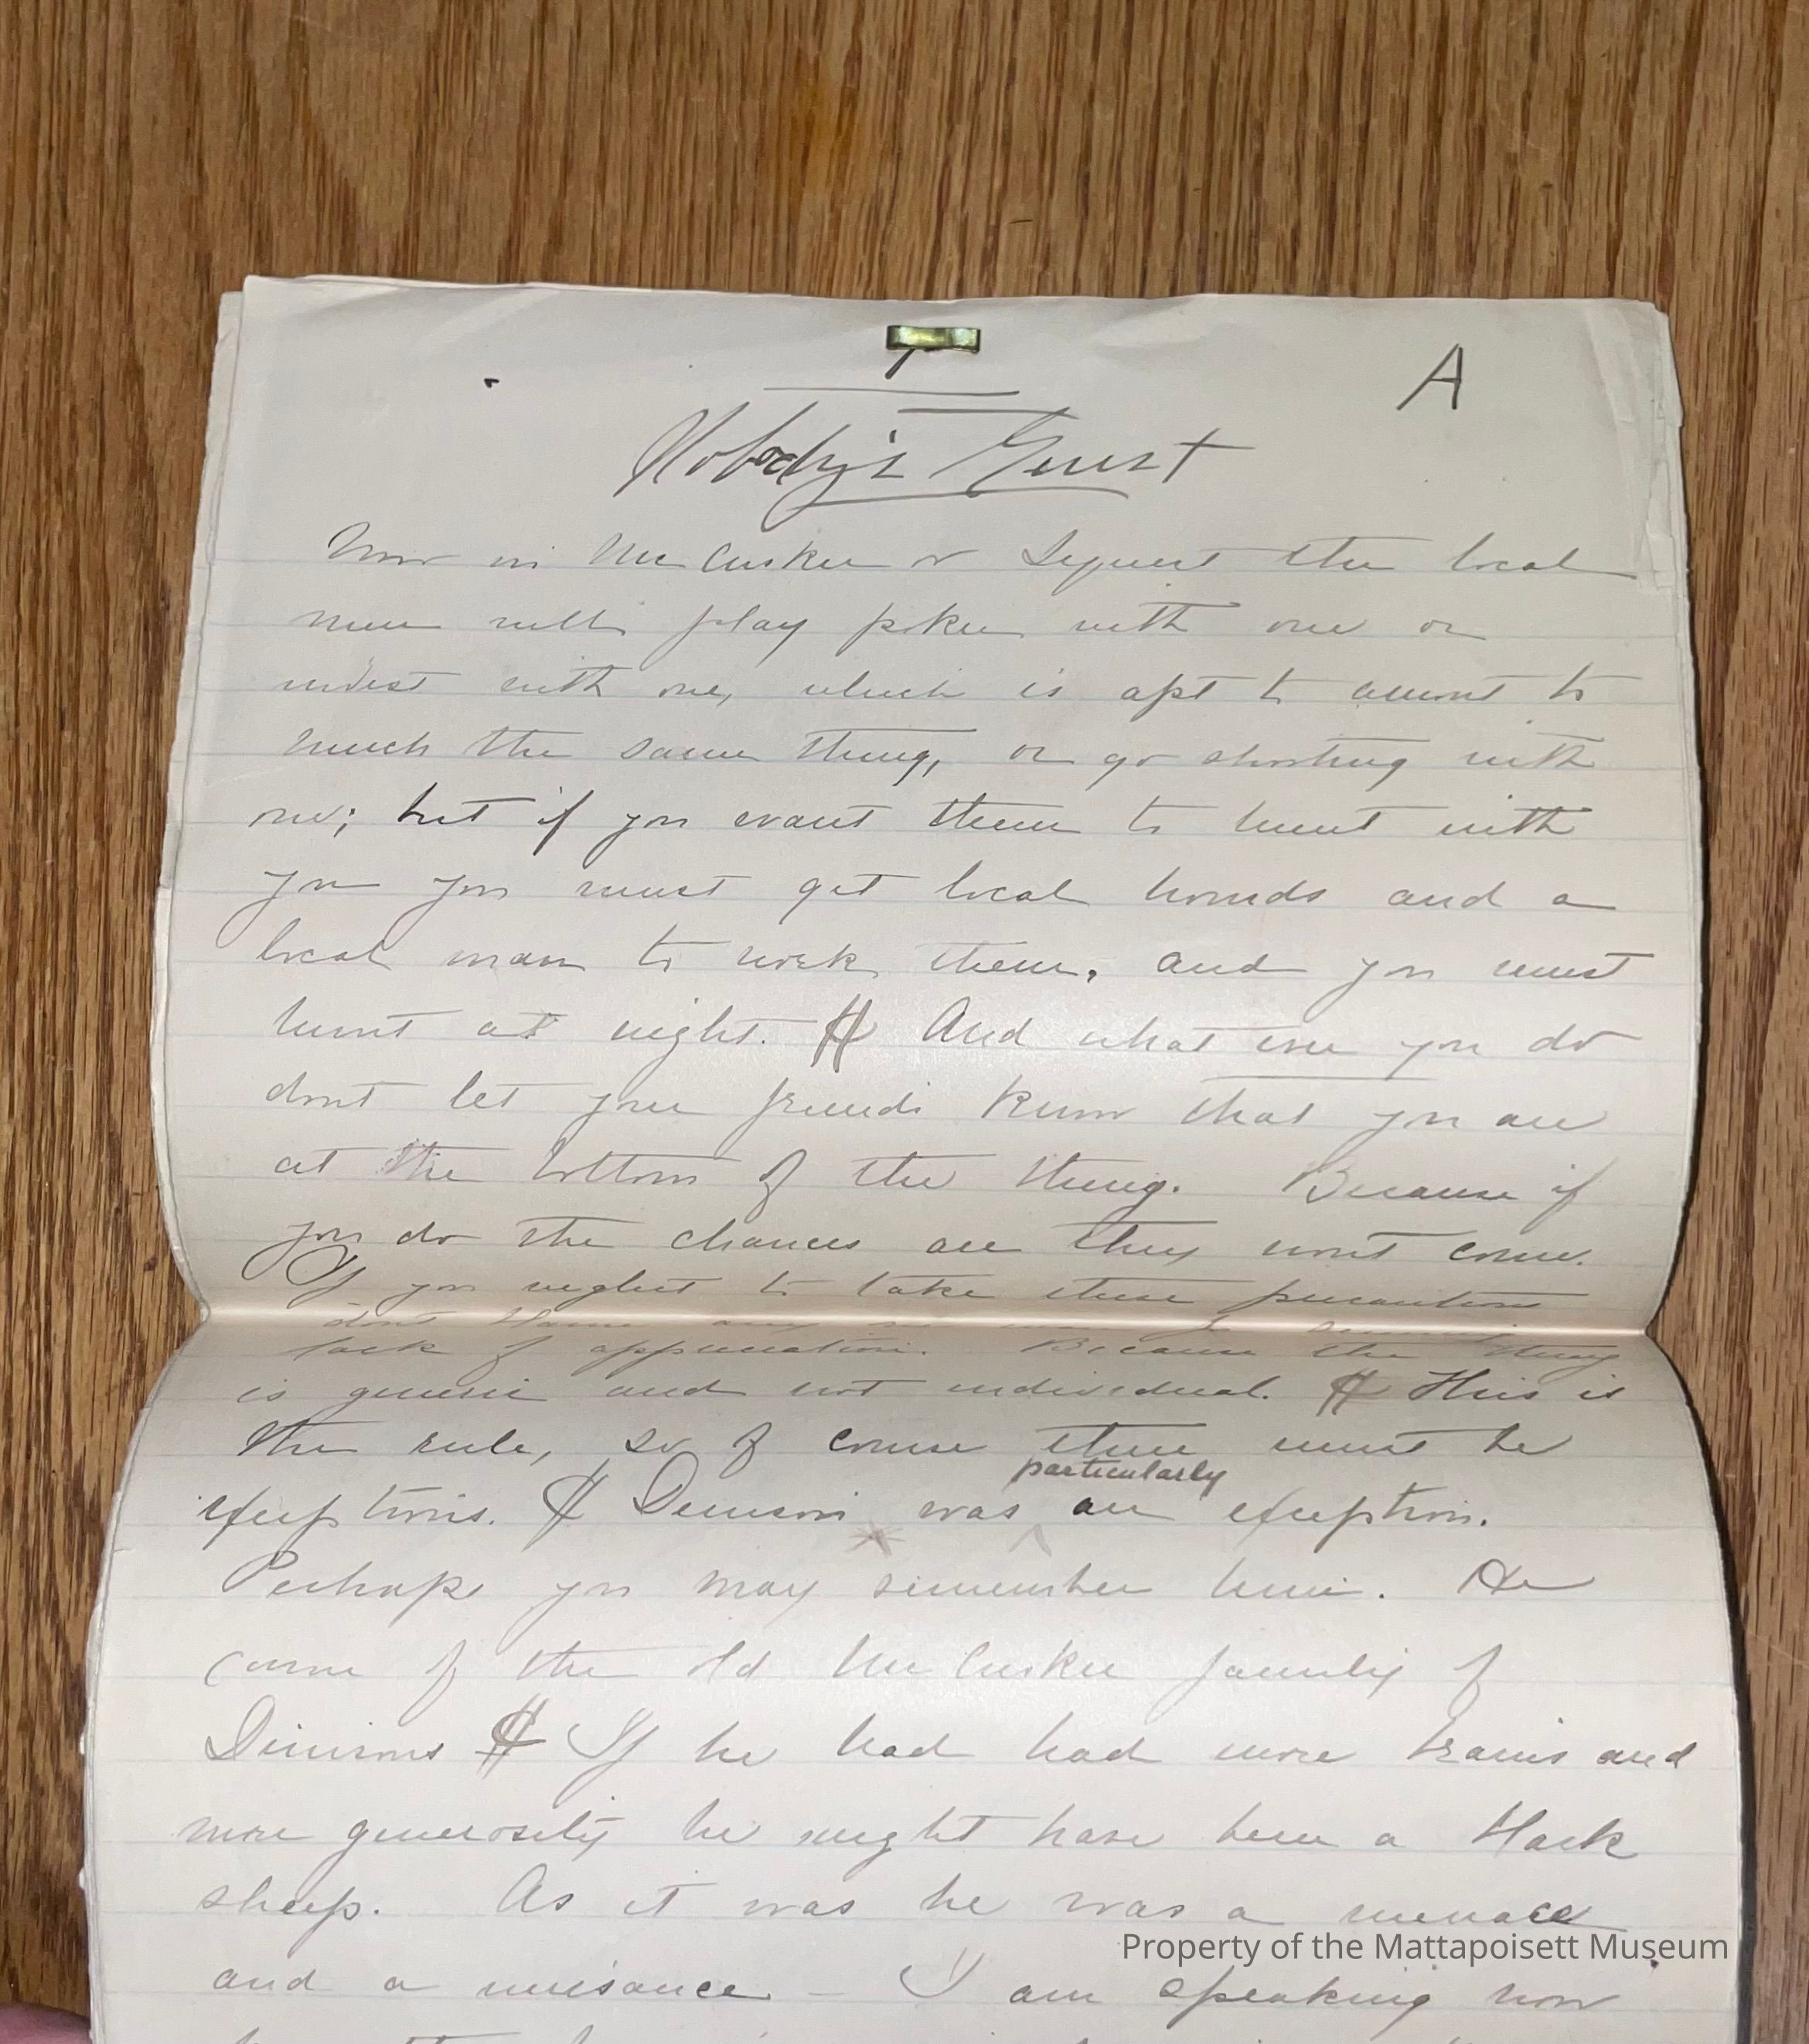 A
Nobody's Guest
Now in McCuskee or Sequest the local
men will play poker with one or
invest with one, which is apt to amount to
much the same thing, or go shooting with
one; but if you want them to hunt with
you you must get local hounds and a
local man to work them, and you must
hunt at night. And what ever you do
dont let your friends know that you are
at the bottom of the thing. Because if
you do the chances are they wont come.
If you neglect to take these precautions
dont blame any
lack of appreciation. Because the thing
is generic and not individual. This is
the rule, so of course there must be
particularly
exceptions. Denison was an exception.
Perhaps you may remember him. He
came of the old McCuskee family of
Denisons If he had had more brains and
more generosity he might have been a black
sheep. As it was he was a menace
Property of the Mattapoisett Museum
and a nuisance - I am speaking now